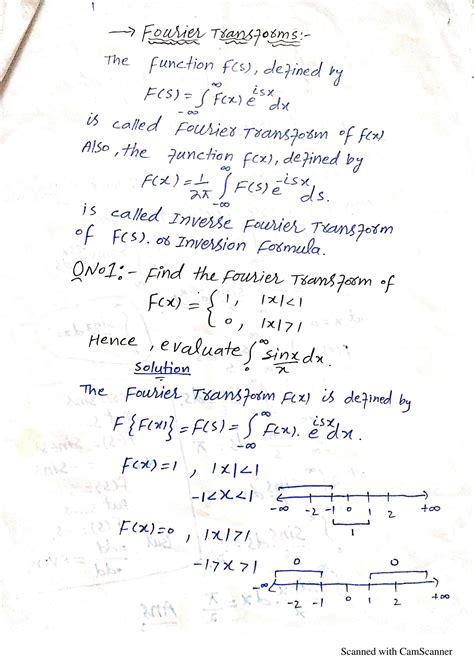 → Fourier Transforms:-
The function F(s), defined by
F(s) = ∫_{-∞}^{∞} F(x) e^{isx} dx
is called Fourier Transform of F(x)
Also, the function F(x), defined by
F(x) = 1/2π ∫_{-∞}^{∞} F(s) e^{-isx} ds.
is called Inverse Fourier Transform
of F(s). or Inversion Formula.
QNo1:- Find the Fourier Transform of
F(x) = { 1, |x|<1
0, |x|>1
Hence, evaluate ∫_{0}^{∞} sinx/x dx.
Solution
The Fourier Transform F(x) is defined by
F{F(x)} = F(s) = ∫_{-∞}^{∞} F(x). e^{isx} dx.
F(x)=1, |x|<1
-1<x<1
-∞ -2 -1 0 1 2 +∞
1
F(x)=0, |x|>1
-1>x>1
0 0
-∞ -2 -1 0 1 2 +∞
Scanned with CamScanner